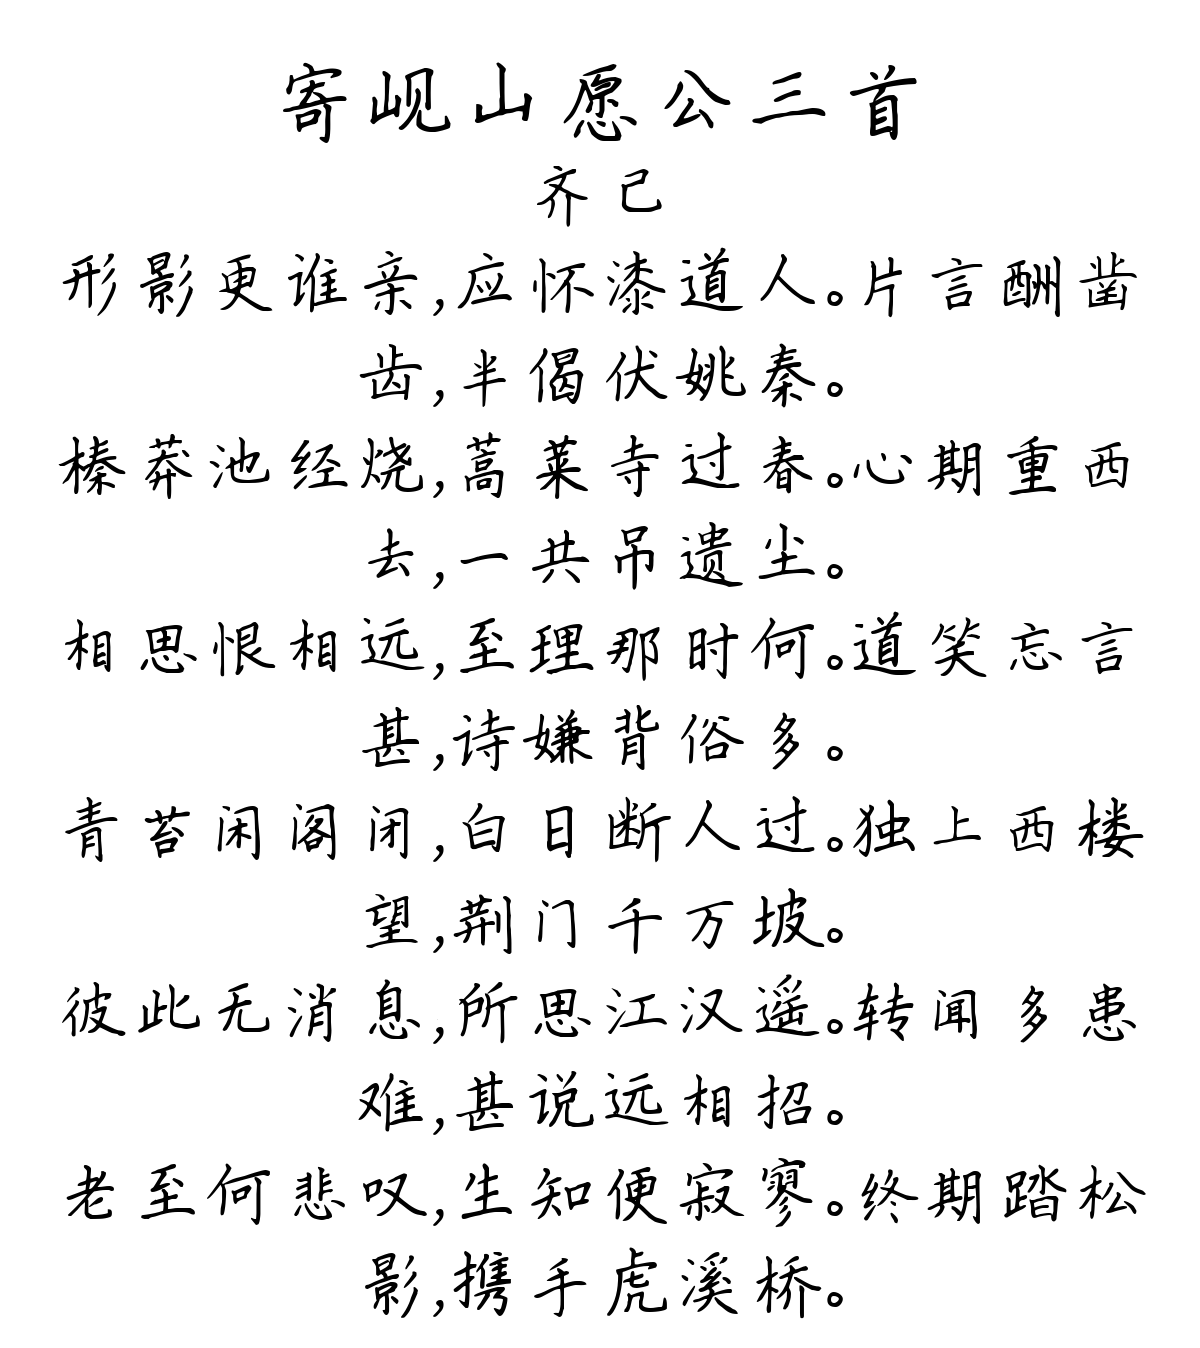 寄岘山愿公三首
齐己
形影更谁亲,应怀漆道人。片言酬凿
齿,半偈伏姚秦。
榛莽池经烧,蒿莱寺过春。心期重西
去,一共吊遗尘。
相思恨相远,至理那时何。道笑忘言
甚,诗嫌背俗多。
青苔闲阁闭,白日断人过。独上西楼
望,荆门千万坡。
彼此无消息,所思江汉遥。转闻多患
难,甚说远相招。
老至何悲叹,生知便寂寥。终期踏松
影,携手虎溪桥。